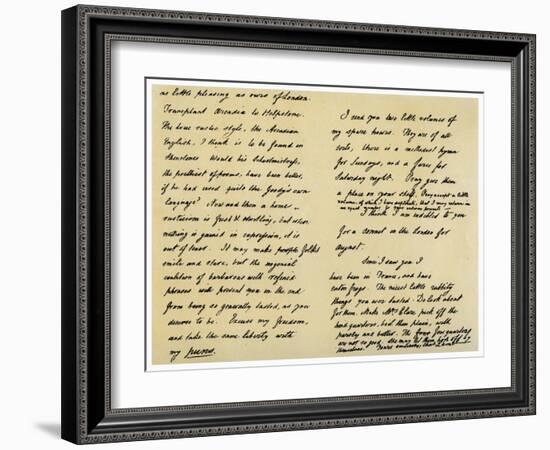 as little pleasing as ours of London.
Transplant Arcadia to Helpstone.
The true rustic style, the Arcadian
English, I think is to be found in
Shenstones. Would his Schoolmistress,
the prettiest of poems, have been better,
if he had used quite the Goody's own
language? Now and then a home
rusticism is fresh & startling, but where
nothing is gained in expression, it is
out of tenor. It may make people folks
smile and stare, but the ungenial
coalition of barbarous with refined
phrases will prevent you in the end
from being so generally tasted, as you
deserve to be. Excuse my freedom,
and take the same liberty with
my puns.
I send you two little volumes of
my spare hours. They are of all
sorts, there is a methodist hymn
for Sundays, and a farce for
Saturday night. Pray give them
a place on your shelf. Pray accept a little
volume, of which I have duplicate, that I may return in
an equal number to your welcome presents
I think I am indebted to you
for a sonnet in the London for
August.
Since I saw you I
have been in France, and have
eaten frogs. The nicest little rabbity
things you ever tasted. Do look about
for them. Make Mrs Clare pick off the
hind quarters, boil them plain, with
parsley and butter. The fore quarters
are not so good. She may let them hop off by
themselves. Yours sincerely, Chas Lamb